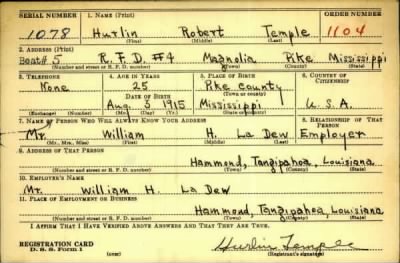 SERIAL NUMBER 1. NAME (Print) ORDER NUMBER
1078 Hurlin Robert Temple 1104
(First) (Middle) (Last)
2. ADDRESS (Print)
Beat# 5 R.F.D. #4 Magnolia Pike Mississippi
(Number and street or R. F. D. number) (Town) (County) (State)
3. TELEPHONE 4. AGE IN YEARS 5. PLACE OF BIRTH 6. COUNTRY OF CITIZENSHIP
None 25 Pike County
DATE OF BIRTH (Town or county)
Aug. 3 1915 Mississippi U.S.A.
(Exchange) (Number) (Mo.) (Day) (Yr.) (State or country)
7. NAME OF PERSON WHO WILL ALWAYS KNOW YOUR ADDRESS 8. RELATIONSHIP OF THAT PERSON
Mr. William H. La Dew Employer
(Mr., Mrs., Miss) (First) (Middle) (Last)
9. ADDRESS OF THAT PERSON
Hammond, Tangipahoa, Louisiana
(Number and street or R. F. D. number) (Town) (County) (State)
10. EMPLOYER'S NAME
Mr. William H. La Dew
11. PLACE OF EMPLOYMENT OR BUSINESS
Hammond, Tangipahoa, Louisiana
(Number and street or R. F. D. number) (Town) (County) (State)
I AFFIRM THAT I HAVE VERIFIED ABOVE ANSWERS AND THAT THEY ARE TRUE.
REGISTRATION CARD
D. S. S. Form 1 (over) Hurlin Temple
(Registrant's signature)